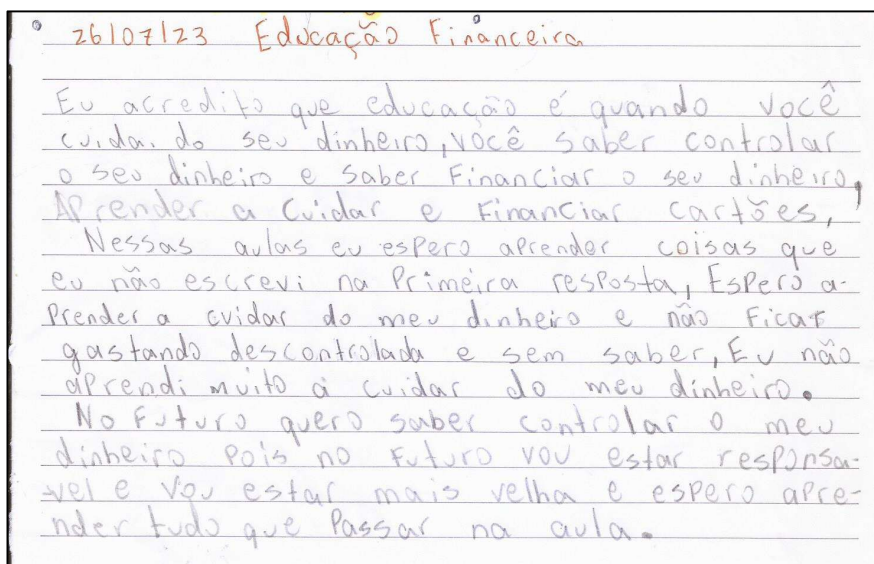 26/07/23 Educação Financeira
Eu acredito que educação é quando você
cuida. do seu dinheiro, você saber controlar
o seu dinheiro e saber Financiar o seu dinheiro,
Aprender a cuidar e Financiar cartões,
Nessas aulas eu espero aprender coisas que
eu não escrevi na Primeira resposta, Espero a-
prender a cuidar do meu dinheiro e não Ficar
gastando descontrolada e sem saber, Eu não
aprendi muito a cuidar do meu dinheiro.
No Futuro quero saber controlar o meu
dinheiro Pois no Futuro vou estar responsa-
vel e vou estar mais velha e espero apre-
nder tudo que Passar na aula.